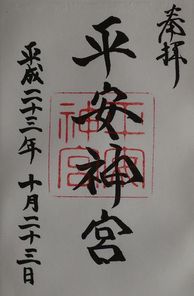 奉拝
平安神宮
平安
神宮
平成二十三年 十月二十三日